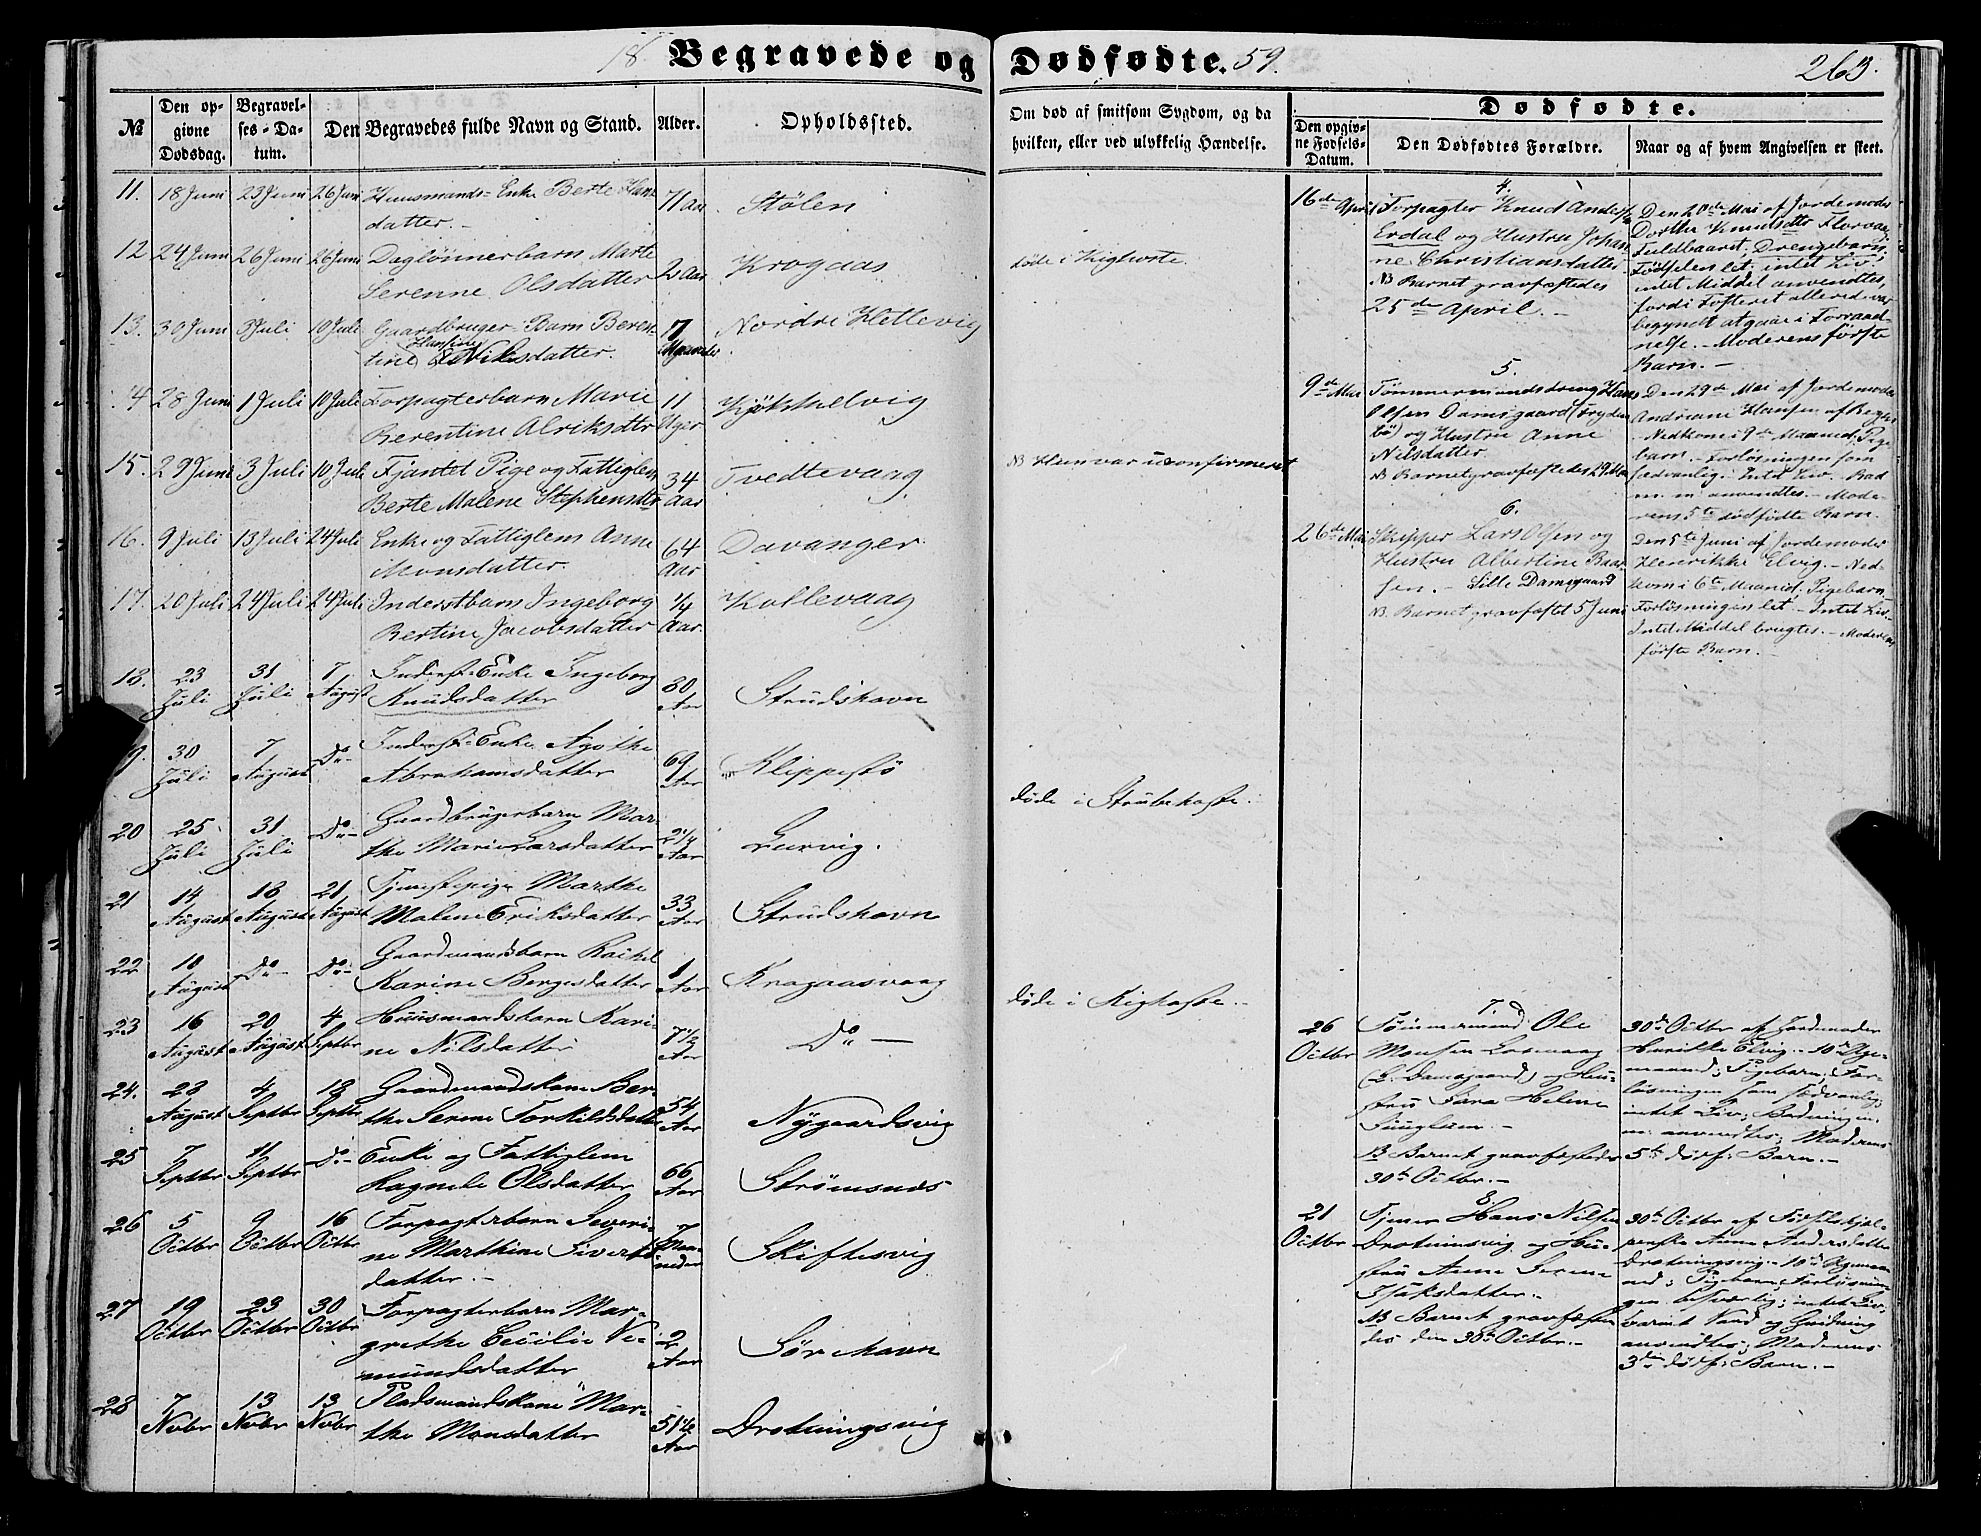 18 Begravede og Dødfødte. 59.
263.
№
Den opgivne Dødsdag.
Begravelses-Datum.
Den Begravedes fulde Navn og Stand.
Alder.
Opholdssted.
Om død af smitsom Sygdom, og da
hvilken, eller ved ulykkelig Hændelse.
Dødfødte.
Den opgivne Fødsels-Datum.
Den Dødfødtes Forældre.
Naar og af hvem Angivelsen er skeet.
11. 18 Juni 23 Juni 26 Juni Huusmands-Enke Berte Hans 71 Aar Stølen
datter.-
12 24 Juni 26 Juni 26 Juni Daglønnerbarn Marte
Serenne Olsdatter 2 Aar Krogaas
døde i Kighoste
13. 30 Juni 3 Juli 10 Juli Gaardbruger-Barn Beren- 7 Nordre Hettevig
tine Hansine Nilsdatter. Maaneder
14 28 Juni 1 Juli 10 Juli Forpagterbarn Marie 11
Berentine Alriksdtr Uger Kjøkkelvig
15. 29 Juni 3 Juli 10 Juli Fjantet Pige og Fattiglem
Berte Malene Stephensdtr 34 Aar Tvedtevaag
NB Hun var uconfirmeret
16. 9 Juli 13 Juli 24 Juli Enke og Fattiglem Anne
Monsdatter. 64 Aar Davanger
17. 20 Juli 24 Juli 24 Juli Inderstbarn Ingeborg
Bertine Jacobsdatter 1/4 Aar. Kollevaag
18. 23 Juli 31 Juli 7 August Inderst-Enke Ingeborg
Knudsdatter 80 Aar Strudshavn
19. 30 Juli 7 August Do- Inderst-Enke Agothe
Abrahamsdatter 69 Aar Klippestø
20 25 Juli 31 Juli Do- Gaardbrugerbarn Mar-
the Marie Larsdatter 2 1/4 Aar Lurvig.
døde i Strubehoste.
21 14 August 18 August 21 August Tjenestepige Marthe
Malene Eriksdatter 33 Aar Strudshavn
22 18 August Do- Do- Gaardmandsbarn Rachel
Karine Børgesdatter 1 Aar Kragaasvaag
døde i Kighoste.-
23 16 August 20 August 4 Septbr Huusmandsbarn Kari-
ne Nilsdatter 7 1/2 Aar Do-
24. 28 August 4 Septbr 18 Septbr Gaardmandskone Ber-
the Serene Torkildsdatter 54 Aar Nygaardsvig
25 7 Septbr 11 Septbr Do- Enke og Fattiglem
Ragnele Olsdatter 66 Aar Strømsnæs
26 5 Octbr 9 Octbr 16 Octbr Forpagterbarn Severi-
ne Marthine Siverts
datter.- 7 Maaneder Skiftesvig
27 19 Octbr 23 Octbr 30 Octbr Forpagterbarn Mar-
grethe Cecilie Ve-
mundsdatter 2 Aar Sørehavn
28 7 Novbr 13 Novbr 13 Novbr Pladsmandskone Mar-
the Monsdatter 51 1/2 Aar Drotningsvig
4.
16de April Forpagter Knud Anders
Erdal og Hustru Johan
ne Christiansdatter
NB Barnet gravfæstedes
25de April.-
Den 20de Mai af Jordemoder
Dorthe Knudsdtr Florvaag
Fuldbaaret. Drengebarn;
Fødselen let, intet Liv.
intet Middel anvendtes,
fordi Fosteret allerede var
begyndt at gaae i Forraad-
nelse. - Moderens første
Barn.-
5.
9de Mai Tømmermandsdreng Hans
Olsen Damsgaard (Fryden
bø) og Hustru Anne
Nilsdatter
NB Barnet gravfæstedes 29 Mai
Den 29de Mai af Jordemoder
Andriane Hansen af Bergen
Nedkom i 9de Maaned. Pige
barn. - Forløsningen som
sædvanlig. Intet Liv. Bad
m. m. anvendtes. - Mode-
rens 5te dødfødte Barn.
6.
26de Mai Skipper Lars Olsen og
Hustru Albertine Baar
sen. - Lille Damsgaard
NB. Barnet gravfæstet 5 Juni
Den 5te Juni af Jordemoder
Henrikke Elvig. - Ned-
kom i 6te Maaned. Pigebarn
Forløsningen let. - Intet Liv.
Intet Middel brugtes. - Moderens
første Barn.
7.
26 Octbr Tømmermand Ole
Monsen Loevaag
(L. Damsgaard) og Hu-
stru Sara Helene
Ljunglum.-
NB Barnet gravfæstedes
30te Octbr.-
30te Octbr af Jordemoder
Henrikke Elvig. - 10de Uge-
maaned; Pigebarn; For-
løsningen som sædvanlig;
intet Liv; Badningen
m. anvendtes; Moderens
5te dødf: Barn.-
8.
21 Octbr Tjener Hans Nilsen
Drotningsvig og Hu-
stru Anne Serene
Isaksdatter.-
NB Barnet gravfæste
des den 30te Octbr.-
30te Octbr af Fødselshjæl-
perske Anne Andersdatter
Drotningsvig. - 10de Ugemaa
ned; Pigebarn, Forløsnin-
gen besværlig; intet Liv,
varmt Vand og Gnidning
anvendtes; Moderens
3die dødf: Barn.-